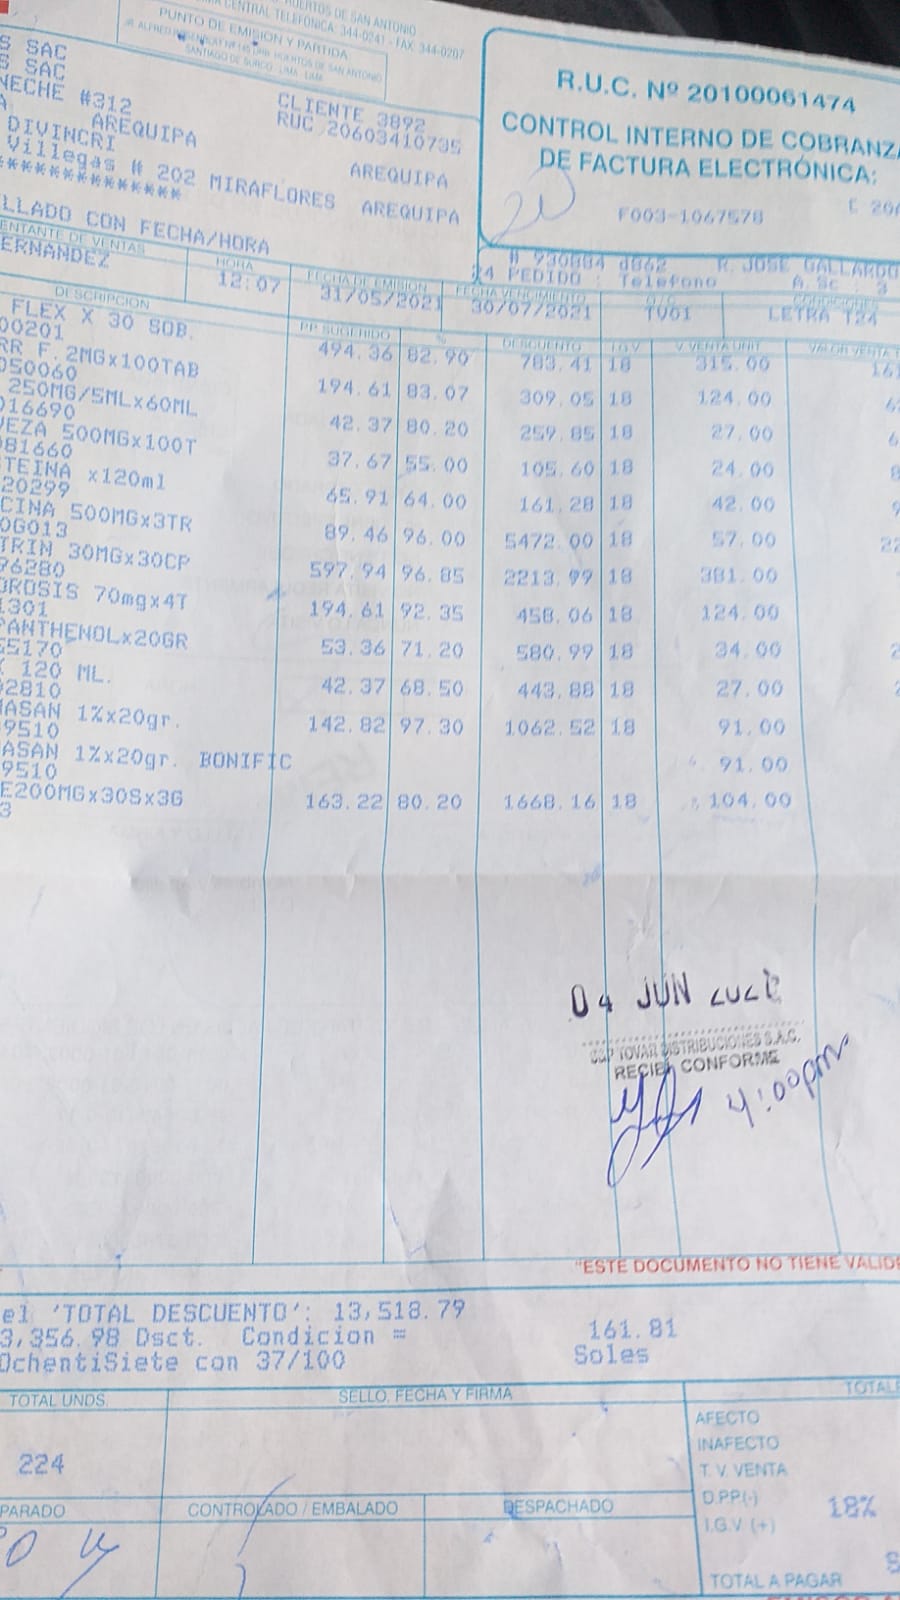 HUERTOS DE SAN ANTONIO
CENTRAL TELEFONICA: 344-0241 - FAX: 344-0207
PUNTO DE EMISION Y PARTIDA
SANTIAGO DE SURCO - LIMA - LIMA
S SAC
S SAC
NECHE #312
CLIENTE 3892
A AREQUIPA
RUC 20603410735
DIVINCRI
AREQUIPA
Villegas # 202 MIRAFLORES AREQUIPA
***************
LLADO CON FECHA/HORA
R.U.C. Nº 20100061474
CONTROL INTERNO DE COBRANZA
DE FACTURA ELECTRÓNICA:
20
F003-1067578
# 930884 d862 R. JOSE GALLARDO
24 PEDIDO : Telefono A.Sc : 3
ENTANTE DE VENTAS
ERNANDEZ
HORA
12:07
FECHA DE EMISION
31/05/2021
FECHA VENCIMIENTO
30/07/2021
TV01
LETRA T24
DESCRIPCION PP SUGERIDO % DESCUENTO I.G.V V. VENTA UNIT VALOR VENTA
FLEX X 30 SOB. 494.36 82.90 783.41 18 315.00
00201
RR F.2MGx100TAB 194.61 83.07 309.05 18 124.00
050060
250MG/5MLx60ML 42.37 80.20 259.85 18 27.00
016690
VEZA 500MGx100T 37.67 55.00 105.60 18 24.00
081660
TEINA x120ml 65.91 64.00 161.28 18 42.00
20299
CINA 500MGx3TR 89.46 96.00 5472.00 18 57.00
0G013
TRIN 30MGx30CP 597.94 96.85 2213.99 18 381.00
96280
OROSIS 70mgx4T 194.61 92.35 458.06 18 124.00
1301
PANTHENOLx20GR 53.36 71.20 580.99 18 34.00
55170
120 ML. 42.37 68.50 443.88 18 27.00
02810
MASAN 1%x20gr. 142.82 97.30 1062.52 18 91.00
9510
ASAN 1%x20gr. BONIFIC 91.00
9510
E200MGx30Sx3G 163.22 80.20 1668.16 18 104.00
3
04 JUN
TOVAR DISTRIBUCIONES S.A.C.
RECIBI CONFORME
4:00pm
"ESTE DOCUMENTO NO TIENE VALID
el 'TOTAL DESCUENTO': 13,518.79
3,356.98 Dsct. Condicion = 161.81
OchentiSiete con 37/100 Soles
TOTAL UNDS.
224
SELLO, FECHA Y FIRMA
TOTAL
AFECTO
INAFECTO
T. V. VENTA
D.PP(-)
I.G.V (+)
18%
TOTAL A PAGAR
PARADO
CONTROLADO / EMBALADO
DESPACHADO